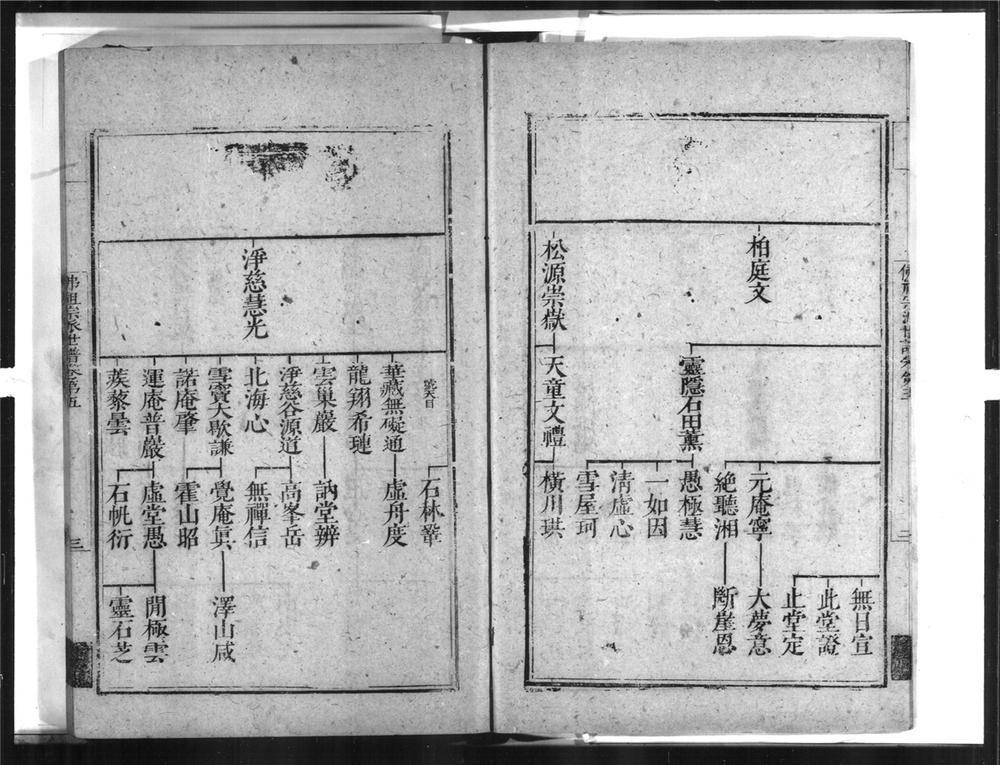 柏庭文
松源崇嶽
靈隱石田薰
天童文禮
元庵寧
絶聽湘
愚極慧
一如因
清虛心
雪屋珂
橫川珙
無日宣
此堂證
止堂定
大夢意
斷崖恩
三
淨慈慧光
號天目
華藏無礙通
龍翔希璉
雲巢巖
淨慈谷源道
北海心
雪竇大歇謙
諾庵肇
運庵普巖
蒺藜曇
石林鞏
虛舟度
訥堂辨
高峯岳
無禪信
覺庵真
霍山昭
虛堂愚
石帆衍
澤山咸
閒極雲
靈石芝
佛祖宗派世譜卷第五
三